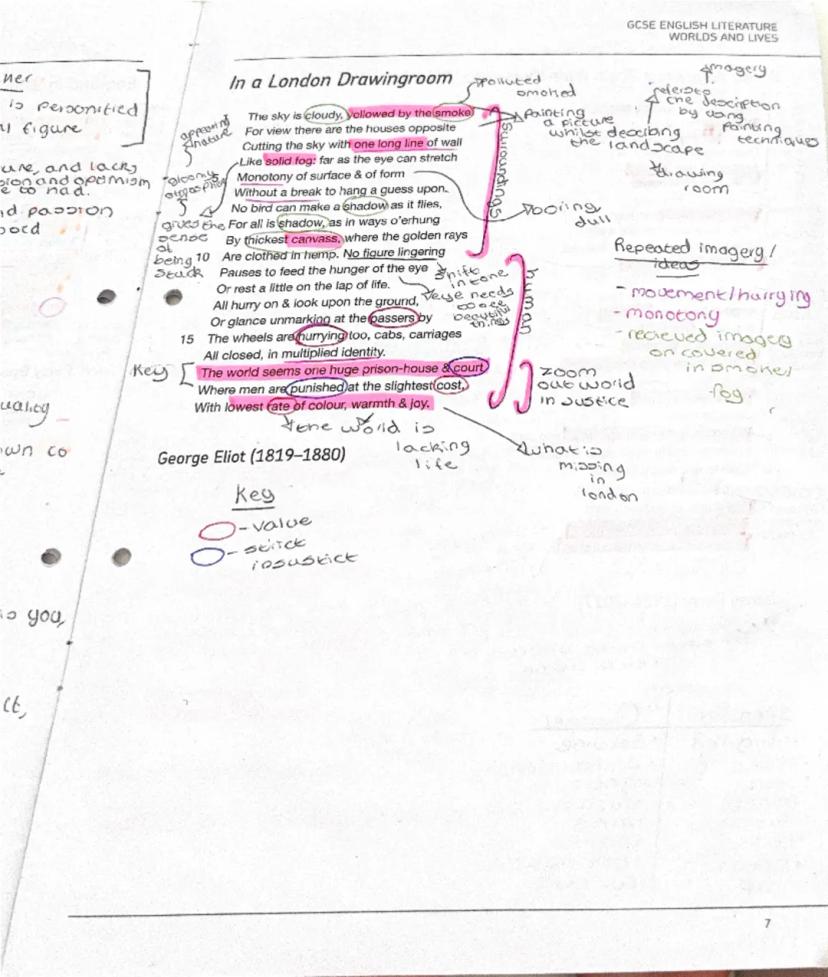 GCSE ENGLISH LITERATURE
WORLDS AND LIVES
In a London Drawingroom
The sky is cloudy, yellowed by the smoke.
For view there are the houses opposite
Cutting the sky with one long line of wall
Like solid fog: far as the eye can stretch
Monotony of surface & of form
Without a break to hang a guess upon.
No bird can make a shadow as it flies,
For all is shadow, as in ways o'erhung
By thickest canvass, where the golden rays
10 Are clothed in hemp. No figure lingering
Pauses to feed the hunger of the eye
Or rest a little on the lap of life.
All hurry on & look upon the ground,
Or glance unmarking at the passers by
15 The wheels are hurrying too, cabs, carriages
All closed, in multiplied identity.
The world seems one huge prison-house & court
Where men are punished at the slightest cost,
With lowest rate of colour, warmth & joy.
George Eliot (1819–1880)
ner
is personified
figure
ure, and lacks
sion and optomism
e to had.
nd passion
uality
own co
is you,
ct,
nature
gives the
sense
of
being
stuck
Key
polluted
smoked
painting
a picture
whilst describing
the landscape
imagery
refers to
the description
by using
painting
techniques
drawing
room
surroundings
boring
dull
shift
in tone
eye needs
to see
beautiful
things
human
zoom
out world
injustice
the world is
lacking
life
what is
missing
in
london
Repeated imagery/
ideas
- movement/hurrying
- monotony
- recieved imagery
on covered
in smoke/
fog
Key
- value
- strict
injustict
7